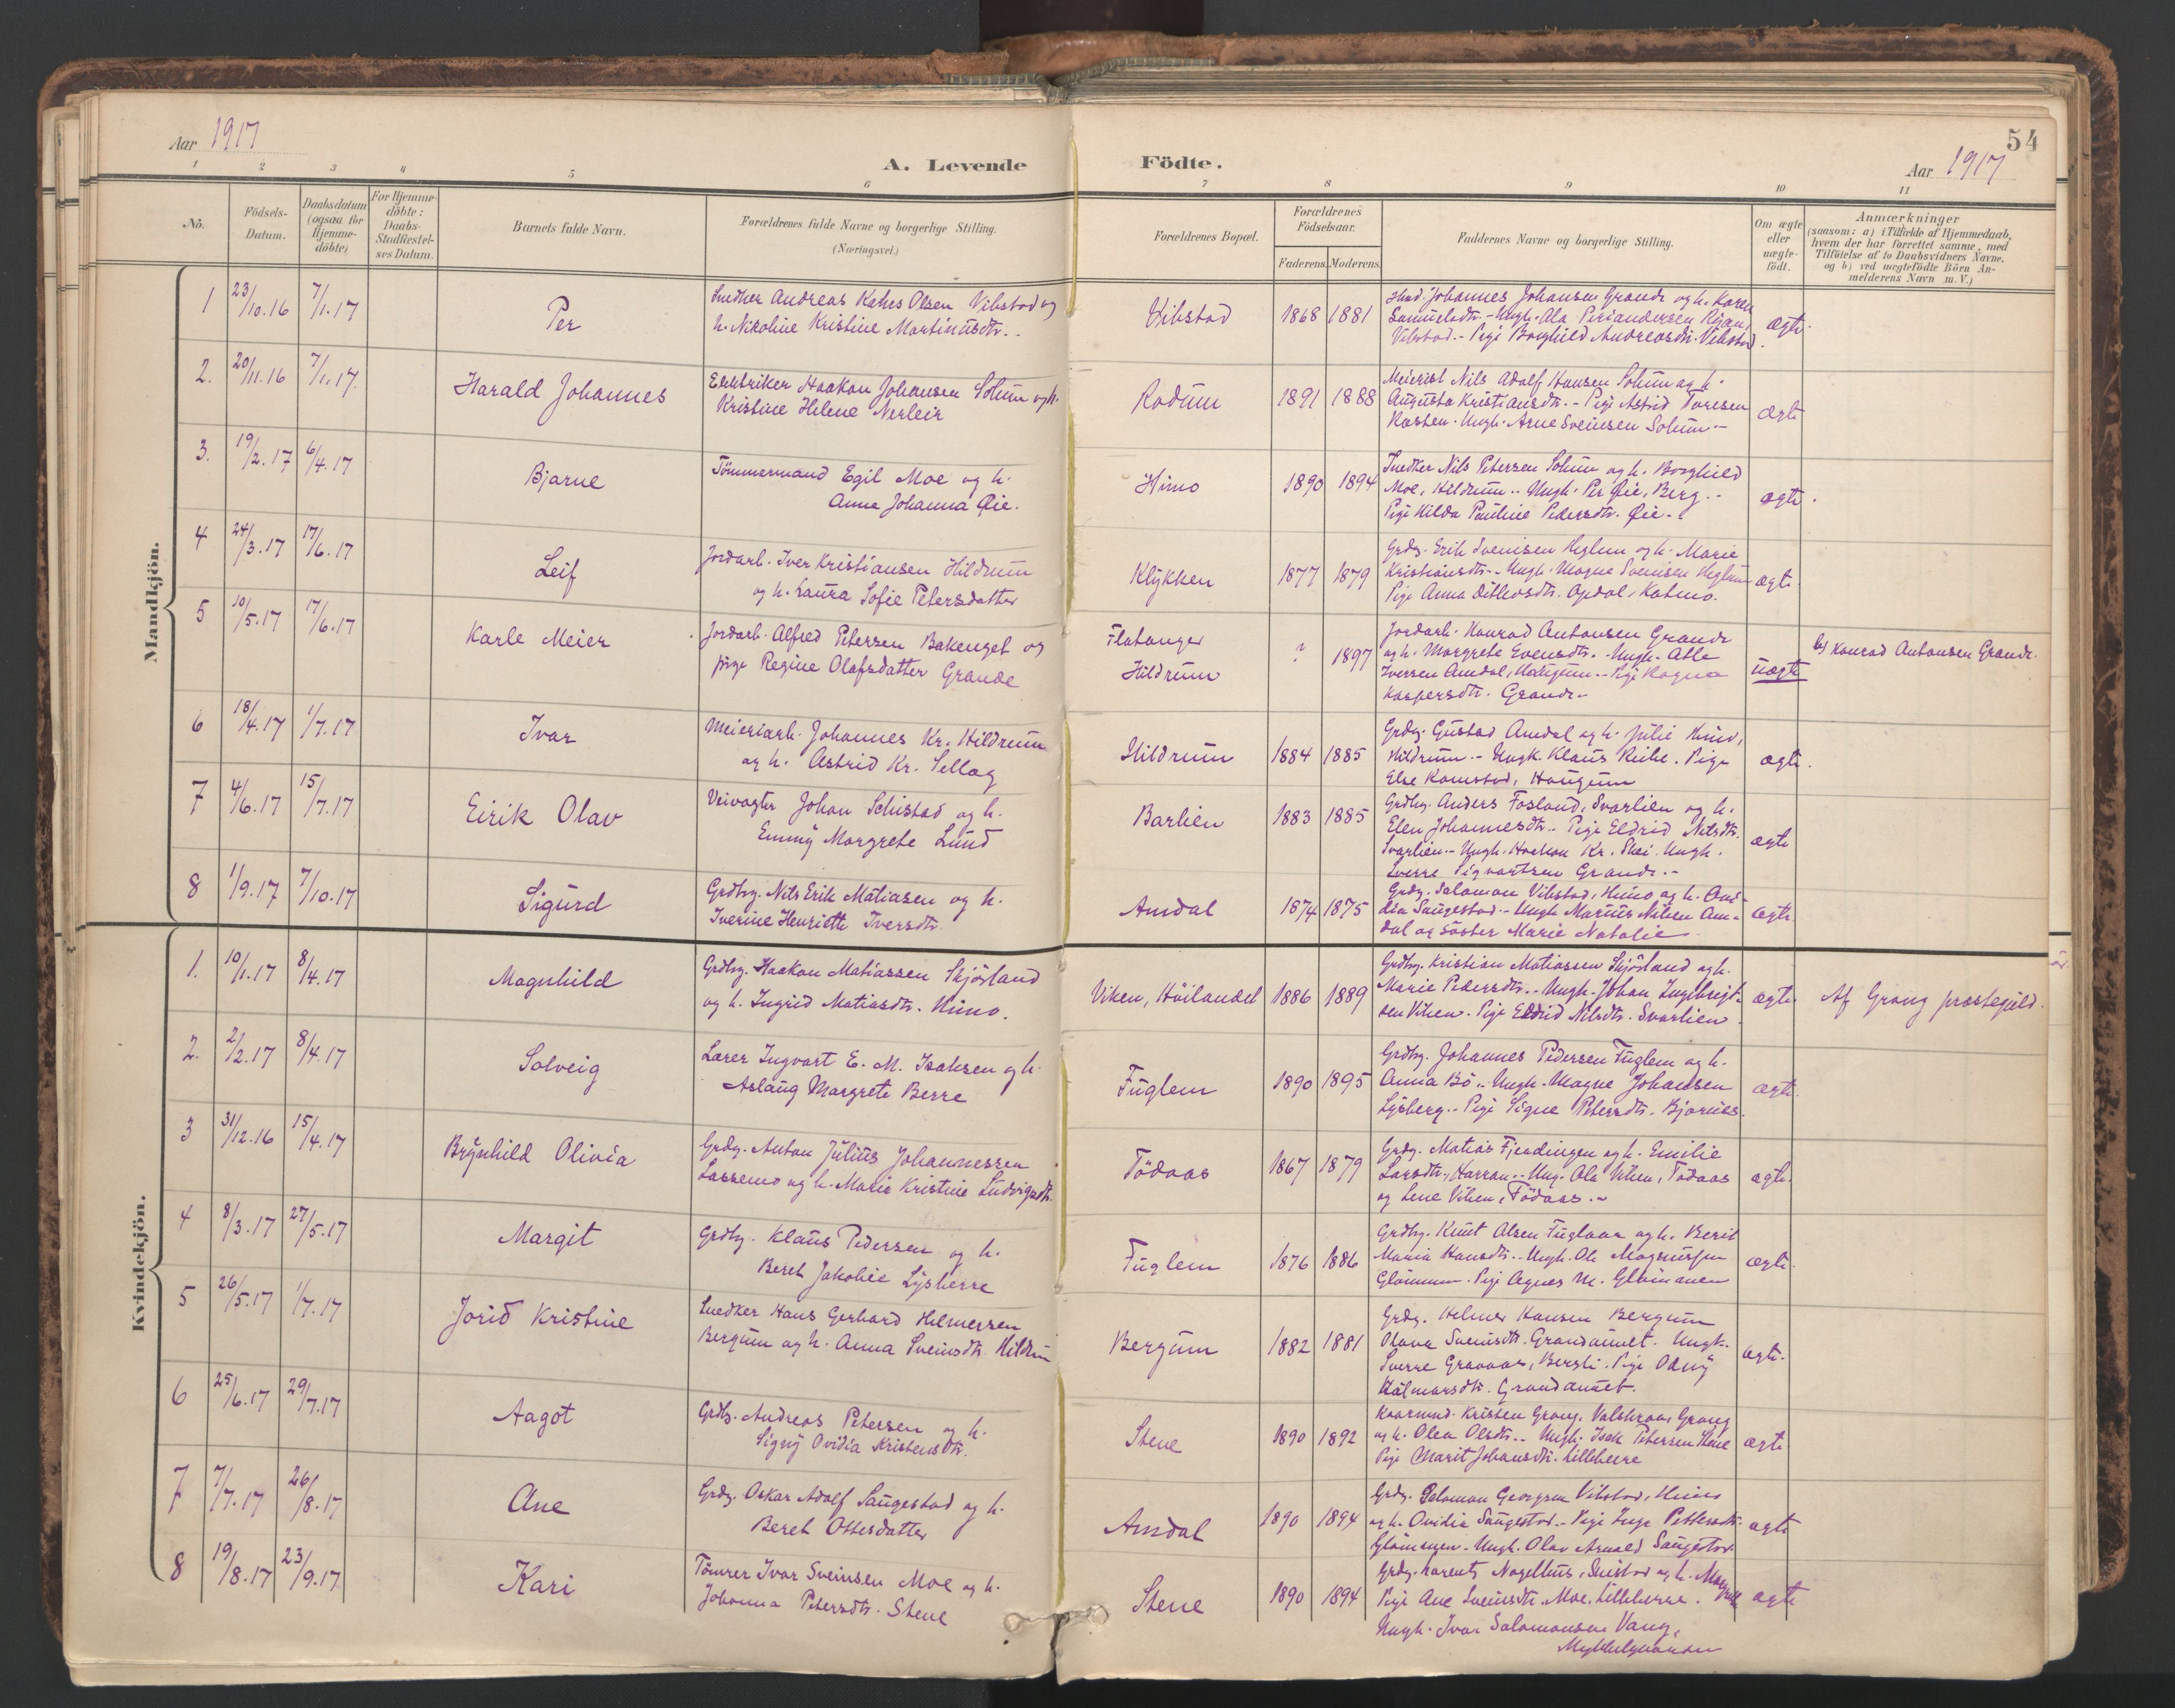 54
Aar 1917
A. Levende Födte.
Aar 1917
1 2 3 4 5 6 7 8 9 10 11
No.
Födsels-Datum.
Daabsdatum (ogsaa for Hjemme-döbte)
For Hjemme-döbte: Daabs-Stadfæstel-ses Datum.
Barnets fulde Navn.
Forældrenes fulde Navne og borgerlige Stilling. (Næringsvei.)
Forældrenes Bopæl.
Forældrenes Födselsaar.
Faderens. Moderens.
Faddernes Navne og borgerlige Stilling.
Om ægte eller uægte födt.
Anmærkninger
(saasom: a) i Tilfælde af Hjemmedaab, hvem der har forrettet samme, med Tilföielse af to Daabsvidners Navne, og b) ved uægtefödte Börn An-melderens Navn m. V.)
Mandkjön.
1 23/10.16 7/1.17 Per
Snedker Andreas Olsen Vibstad og
h. Nikoline Kristine Martinusdtr.
Vibstad 1868 1881
Johannes Johansen Grande og h. Karen
Samuelsdtr. - Ungk. Ola
Vibstad. - Pige Borghild Andreasdtr. Vibstad
ægte
2. 20/11.16 7/1.17. Harald Johannes
Elektriker Haakon Johansen Solum og h.
Kristine Helene Nerleir
Rodum 1891 1888
Meierist Nils Adolf Hansen Solum og h.
Augusta Kristiansdtr. - Pige Astrid Toresen
Ungk. Arne Sveinsen Solum -
ægte
3. 19/2.17 6/4.17 Bjarne
Tömmermand Egil Moe og h.
Anna Johanna Øie.
Himo 1890 1894
Snedker Nils Petersen Solum og h. Borghild
Moe, Hildrum. - Ungk. Per Øie, Berg. -
Pige Hilda Pauline Pedersdtr. Øie.
ægte.
4 24/3.17 17/6.17 Leif
Jordarb. Iver Kristiansen Hildrum
og h. Laura Sofie Petersdatter
Klykken 1877 1879
Grdbr. Erik Sveinsen Heglum og h. Marie
Kristiansdtr. - Ungk. Magne Sveinsen Heglum
Pige Anna Opdal,
ægte
5 10/5.17 17/6.17 Karle Meier
Jordarb. Alfred Petersen Bakenget og
pige Regine Olafsdatter Grande
Flatanger
Hildrum
? 1897
Jordarb. Konrad Antonsen Grande
og h. Margrete Evensdtr. - Ungk. Atle
Iversen Amdal, - Pige Ragna
Kaspersdtr. Grande -
uægte
b) Konrad Antonsen Grande.
6 18/4.17 1/7.17 Ivar
Meieriarb. Johannes Kr. Hildrum
og h. Astrid Kr. Sellæg
Hildrum 1884 1885
Grdbr. Gustav Amdal og h. Julie Himo,
Hildrum. - Ungk. Klaus - Pige
Else Haugum
ægte.
7 4/6.17 15/7.17 Eirik Olav
Veivogter Johan Schistad og h.
Emmy Margrete Lund
Barlien 1883 1885
Grdbr. Anders Fosland, Svarlien og h.
Elen Johannesdtr. - Pige Eldrid Nilsdtr.
Svarlien. - Ungk. Haakon Kr. Ungk.
Sverre Sigvartsen Grande. -
ægte
8 1/9.17 7/10.17 Sigurd
Grdbr. Nils Erik Matiasen og h.
Iverine Henriette Iversdtr.
Amdal 1874 1875
Grdbr. Salomon Vibstad, Himo og h. Ovi-
dia Saugestad. - Ungk. Marius Nilsen Am-
dal og söster Marie Natalie
ægte
Kvindekjön.
1. 10/1.17 8/4.17 Magnhild
Grdbr. Haakon Matiassen Skjösland
og h. Ingrid Matiasdtr. Himo.
Viken, Höilandet 1886 1889
Grdbr. Kristian Matiassen Skjösland og h.
Marie Pedersdtr. - Ungk. Johan Ingebrigt-
sen Viken. Pige Eldrid Nilsdtr. Svarlien.
ægte.
Af Grong prestegjeld.
2. 2/2.17 8/4.17 Solveig
Lærer Ingvart E. M. Isaksen og h.
Aslaug Margrete Berre
Fuglem 1890 1895
Grdbr. Johannes Pedersen Fuglem og h.
Anna Bö. - Ungk. Magne Johansen
Lysberg. - Pige Signe Petersdtr.
ægte.
3 31/12.16 15/4.17 Brynhild Olivia
Grdbr. Anton Julius Johannessen
Lassemo og h. Marie Kristine Ludvigsdtr.
Tödaas 1867 1879
Grdbr. Matias Fjendingen og h. Emilie
Larsdtr., Harran. - Ung. Ola Viken, Tödaas
og Lene Viken, Tödaas. -
ægte.
4 8/3.17 27/5.17 Margit
Grdbr. Klaus Pedersen og h.
Beret Jakobie Lysberre
Fuglem 1876 1886
Grdbr. Knut Olsen Fuglaar og h. Berit
Maria Hansdtr. - Ungk. Ole
Glömmen. Pige Agnes M. Glömmen
ægte.
5 26/5.17 1/7.17 Jorid Kristine
Snedker Hans Gerhard Helmersen
Bergum og h. Anna Sveinsdtr. Hildrum
Bergum 1882 1881
Grdbr. Helmer Hansen Bergum
Olava Sveinsdtr. Grandaunet. Ungk.
Sverre Pige Odny
Hilmarsdtr. Grandaunet.
ægte.
6 25/6.17 29/7.17 Aagot
Grdbr. Andreas Petersen og h.
Signy Ovidia Kristensdtr.
Stene 1890 1892
Kaarmand Kristen Grong, Valskraa, Grong
og h. Olea Olsdtr. - Ungk. Isak Petersen Stene
Pige Marit Johansdtr. Lilleberre
ægte
7 7/7.17 26/8.17 Ane
Grdbr. Oskar Adolf Saugestad og h.
Beret Ottesdatter
Amdal 1890 1894
Grdbr. Salomon Georgsen Vibstad, Himo
og h. Ovidia Saugestad. - Pige Inga Pettersdtr.
Glömmen. Ungk. Olav Arnold Saugestad
ægte
8 19/8.17 23/9.17 Kari
Tömrer Ivar Sveinsen Moe og h.
Johanna Petersdtr. Stene
Stene 1890 1894
Grdbr. Laurents Nagelhus, og h.
Pige Ane Sveinsdtr. Moe, Lilleberre.
Ungk. Ivar Salomonsen Vang,
ægte